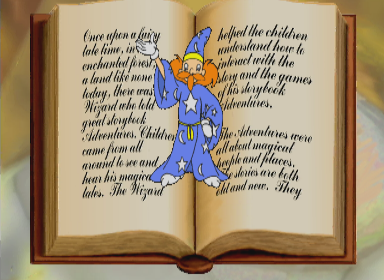 Once upon a fairy
tale time, in
enchanted forest
a land like none
today, there was
Wizard who told
great storybook
Adventures. Children
came from all
around to see and
hear his magic
tales. The Wizard
helped the children
understand how to
interact with the
story and the games
of his storybook
Adventures.
The Adventures were
all about magical
people and places,
stories are both
old and new. They